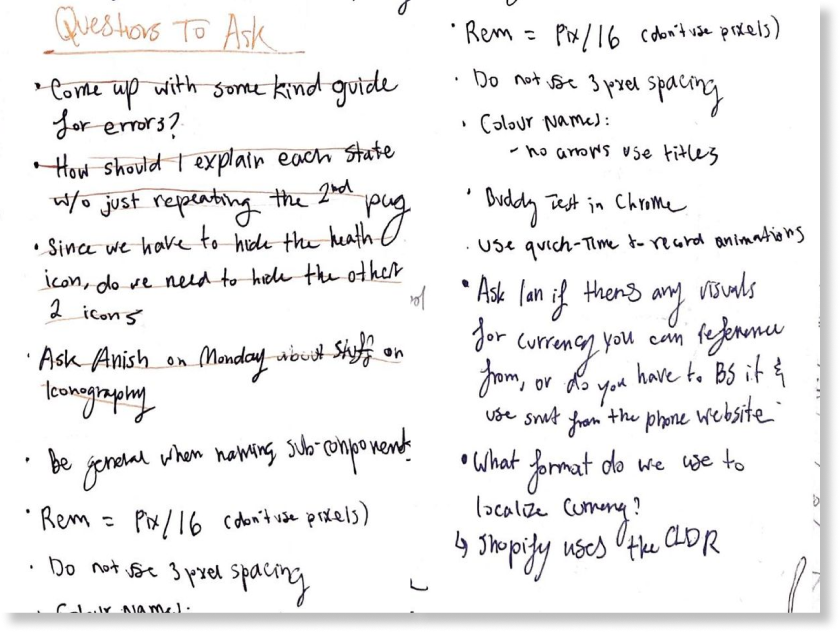 Questions To Ask
• Come up with some kind guide
for errors?
• How should I explain each state
w/o just repeating the 2nd pug
• Since we have to hide the heath
icon, do we need to hide the other
2 icons
• Ask Anish on Monday about stuff on
Iconography
• Be general when naming sub-components
• Rem = Pix/16 (don't use pixels)
• Do not use 3 pixel spacing
• Colour Names:
• Rem = Pix/16 (don't use pixels)
• Do not use 3 pixel spacing
• Colour Names:
- no arrows use titles
• Buddy Test in Chrome
• Use quick-Time to record animations
• Ask Ian if theres any visuals
for currency you can reference
from, or do you have to BS it &
use smt from the phone website
• What format do we use to
localize currency?
↳ Shopify uses the CLDR